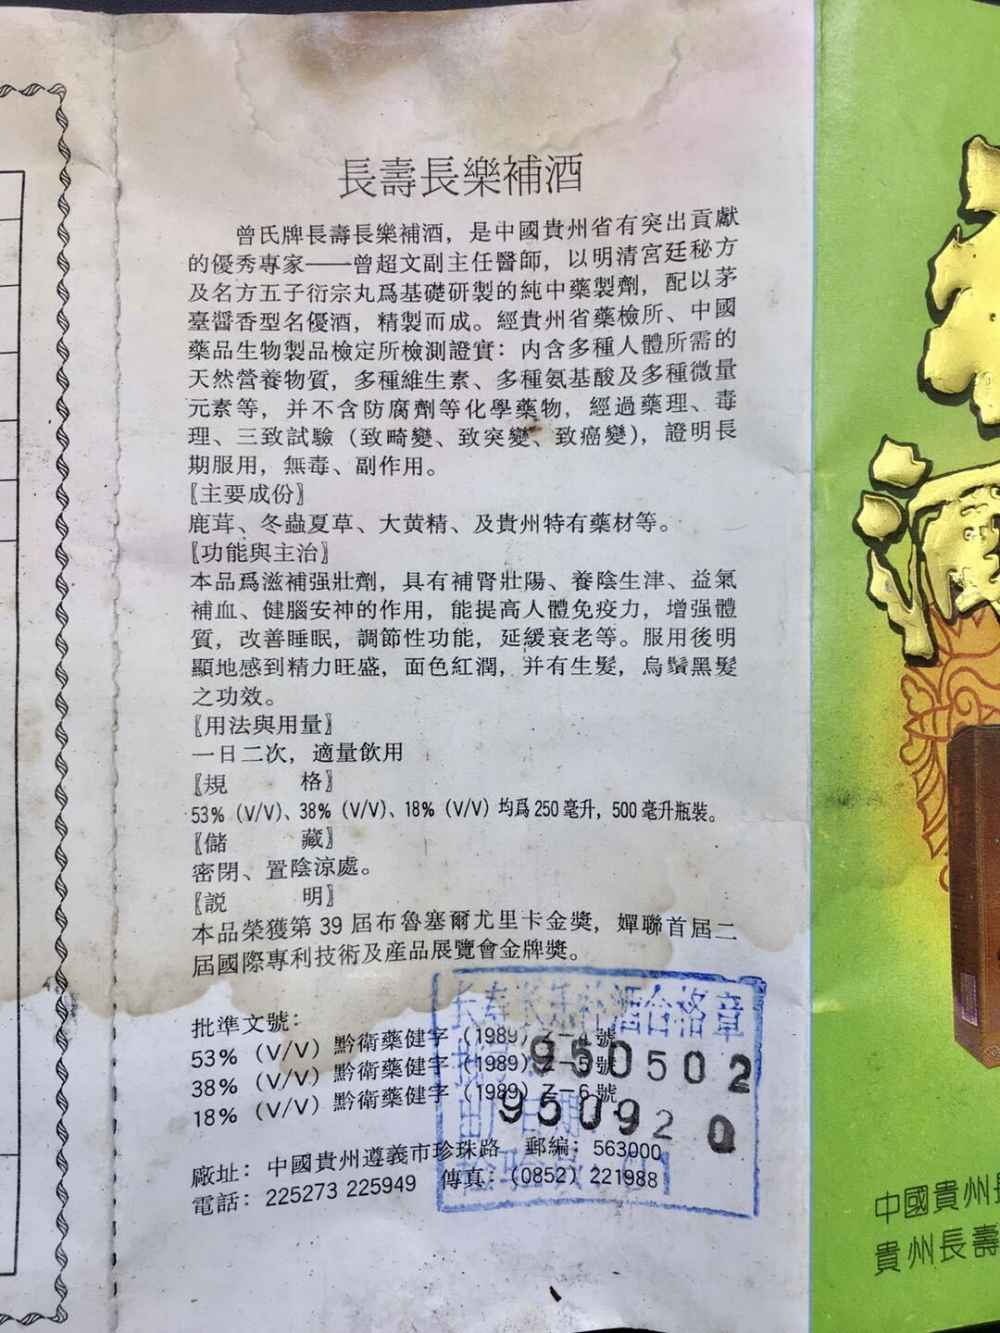 長壽長樂補酒
曾氏牌長壽長樂補酒，是中國貴州省有突出貢獻
的優秀專家——曾超文副主任醫師，以明清宮廷秘方
及名方五子衍宗丸爲基礎研製的純中藥製劑，配以茅
臺醬香型名優酒，精製而成。經貴州省藥檢所、中國
藥品生物製品檢定所檢測證實：内含多種人體所需的
天然營養物質，多種維生素、多種氨基酸及多種微量
元素等，并不含防腐劑等化學藥物，經過藥理、毒
理、三致試驗（致畸變、致突變、致癌變），證明長
期服用，無毒、副作用。
〖主要成份〗
鹿茸、冬蟲夏草、大黄精、及貴州特有藥材等。
〖功能與主治〗
本品爲滋補强壯劑，具有補腎壯陽、養陰生津、益氣
補血、健腦安神的作用，能提高人體免疫力，增强體
質，改善睡眠，調節性功能，延緩衰老等。服用後明
顯地感到精力旺盛，面色紅潤，并有生髮，烏鬚黑髮
之功效。
〖用法與用量〗
一日二次，適量飲用
〖規　　格〗
53%（V/V）、38%（V/V）、18%（V/V）均爲250毫升，500毫升瓶裝。
〖儲　　藏〗
密閉、置陰涼處。
〖説　　明〗
本品榮獲第39届布魯塞爾尤里卡金獎，嬋聯首届二
届國際專利技術及産品展覽會金牌獎。
批準文號：
53%（V/V）黔衛藥健字（1989）Z－4號
38%（V/V）黔衛藥健字（1989）Z－5號
18%（V/V）黔衛藥健字（1989）Z－6號
廠址：中國貴州遵義市珍珠路　郵編：563000
電話：225273 225949　傳真：（0852）221988
长寿长乐补酒合格章
950502
950920
中國貴州
貴州長壽